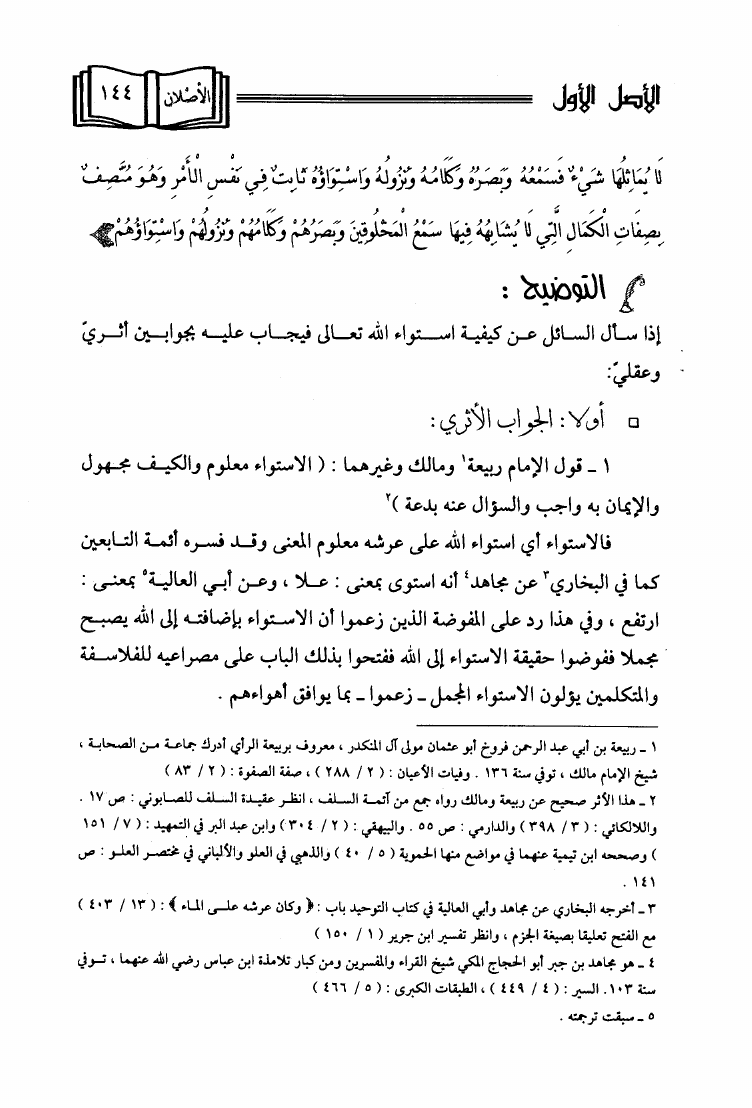 الأصل الأول
الأصلان ١٤٤
لَا يُمَاثِلُهَا شَيْءٌ فَسَمْعُهُ وَبَصَرُهُ وَكَلَامُهُ وَنُزُولُهُ وَاسْتِوَاؤُهُ ثَابِتٌ فِي نَفْسِ الْأَمْرِ وَهُوَ مُتَّصِفٌ
بِصِفَاتِ الْكَمَالِ الَّتِي لَا يُشَابِهُهُ فِيهَا سَمْعُ الْمَخْلُوقِينَ وَبَصَرُهُمْ وَكَلَامُهُمْ وَنُزُولُهُمْ وَاسْتِوَاؤُهُمْ
التوضيح :
إذا سأل السائل عن كيفية استواء الله تعالى فيجاب عليه بجوابين أثريّ
وعقليّ:
□ أولا: الجواب الأثري:
١ ـ قول الإمام ربيعة١ ومالك وغيرهما : ( الاستواء معلوم والكيف مجهول
والإيمان به واجب والسؤال عنه بدعة )٢
فالاستواء أي استواء الله على عرشه معلوم المعنى وقد فسره أئمة التابعين
كما في البخاري٣ عن مجاهد٤ أنه استوى بمعنى : علا ، وعن أبي العالية٥ بمعنى :
ارتفع ، وفي هذا رد على المفوضة الذين زعموا أن الاستواء بإضافته إلى الله يصبح
مجملا ففوضوا حقيقة الاستواء إلى الله ففتحوا بذلك الباب على مصراعيه للفلاسفة
والمتكلمين يؤلون الاستواء المجمل ـ زعموا ـ بما يوافق أهواءهم .
١ ـ ربيعة بن أبي عبد الرحمن فروخ أبو عثمان مولى آل المنكدر ، معروف بربيعة الرأي أدرك جماعة من الصحابة ،
شيخ الإمام مالك ، توفي سنة ١٣٦ . وفيات الأعيان : ( ٢ / ٢٨٨ ) ، صفة الصفوة : ( ٢ / ٨٣ )
٢ ـ هذا الأثر صحيح عن ربيعة ومالك رواه جمع من آئمة السلف ، انظر عقيدة السلف للصابوني : ص ١٧ .
واللالكائي : ( ٣ / ٣٩٨ ) والدارمي : ص ٥٥ . والبيهقي : ( ٢ / ٣٠٤ ) وابن عبد البر في التمهيد : ( ٧ / ١٥١
) وصححه ابن تيمية عنهما في مواضع منها الحموية ( ٥ / ٤٠ ) والذهبي في العلو والألباني في مختصر العلو : ص
١٤١ .
٣ ـ أخرجه البخاري عن مجاهد وأبي العالية في كتاب التوحيد باب : ﴿ وكان عرشه على الماء ﴾ : ( ١٣ / ٤٠٣ )
مع الفتح تعليقا بصيغة الجزم ، وانظر تفسير ابن جرير ( ١ / ١٥٠ )
٤ ـ هو مجاهد بن جبر أبو الحجاج المكي شيخ القراء والمفسرين ومن كبار تلامذة ابن عباس رضي الله عنهما ، توفي
سنة ١٠٣. السير : ( ٤ / ٤٤٩ ) ، الطبقات الكبرى : ( ٥ / ٤٦٦ )
٥ ـ سبقت ترجمته .